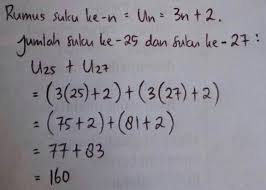 Rumus suku ke-n = Un = 3n + 2.
Jumlah suku ke-25 dan suku ke-27 :
U25 + U27
= (3(25)+2) + (3(27)+2)
= (75+2) + (81+2)
= 77 + 83
= 160